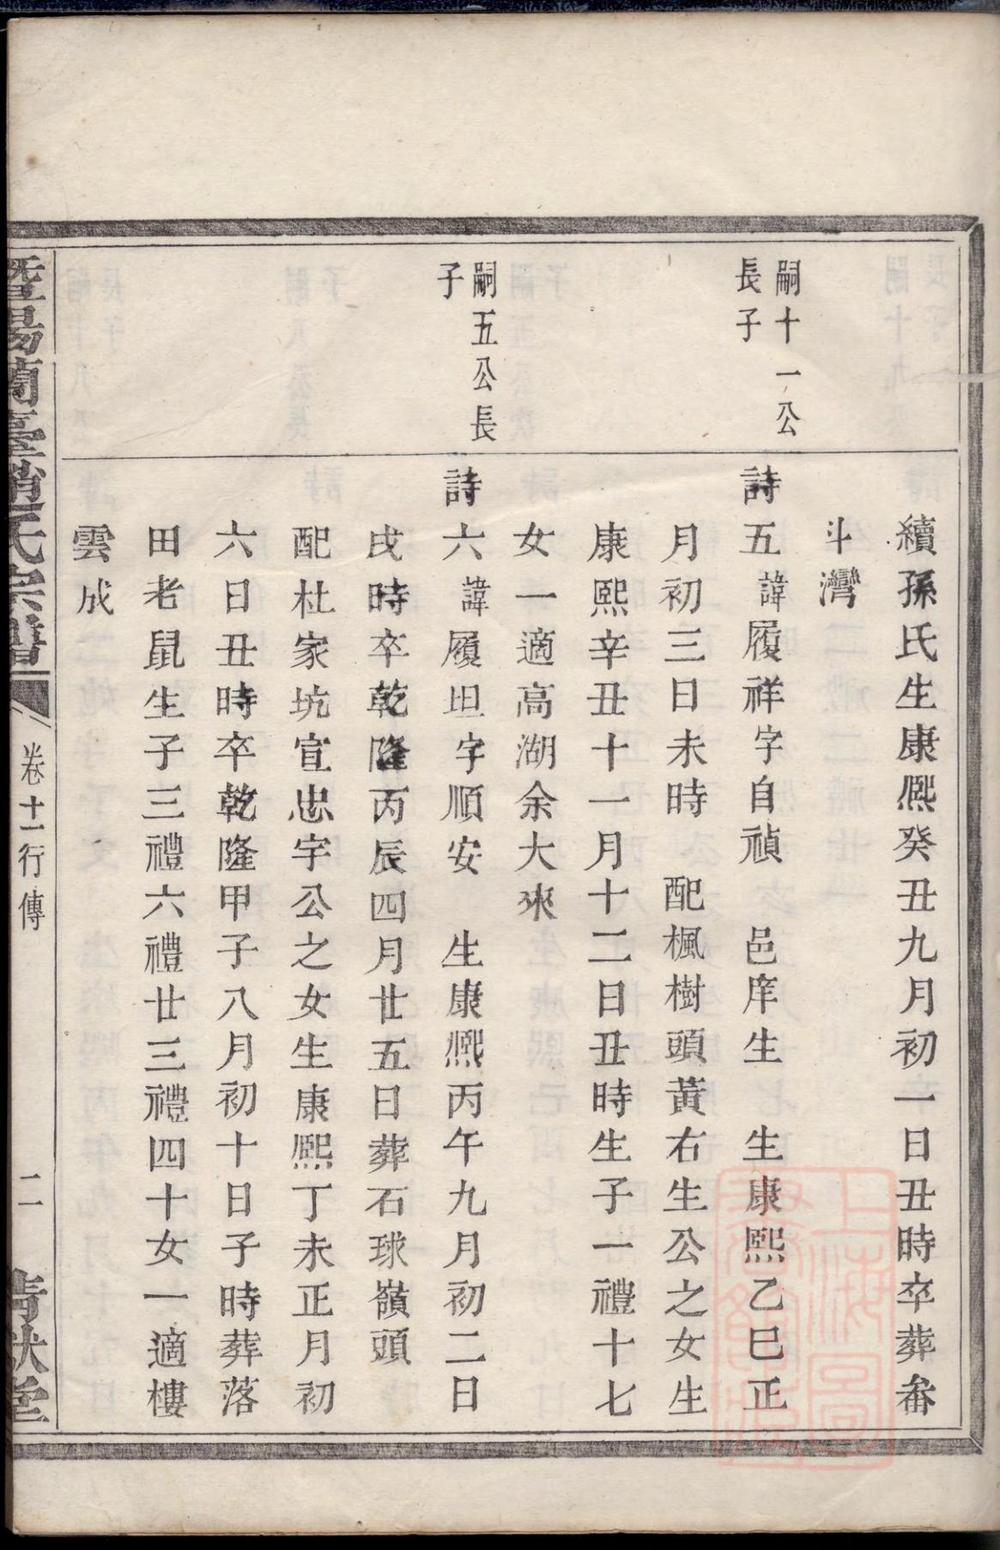 續孫氏生康熙癸丑九月初一日丑時卒葬畚
斗灣
嗣十一公
長子
詩五諱履祥字自禎 邑庠生 生康熙乙巳正
月初三日未時 配楓樹頭黃右生公之女生
康熙辛丑十一月十二日丑時生子一禮十七
女一適高湖余大來
嗣五公長
子
詩六諱履坦字順安 生康熙丙午九月初二日
戌時卒乾隆丙辰四月廿五日葬石球嶺頭
配杜家坑宣忠宇公之女生康熙丁未正月初
六日丑時卒乾隆甲子八月初十日子時葬落
田老鼠生子三禮六禮廿三禮四十女一適樓
雲成
暨陽蘭臺趙氏宗譜 卷十一行傳 二 清猷堂
上海圖書館藏